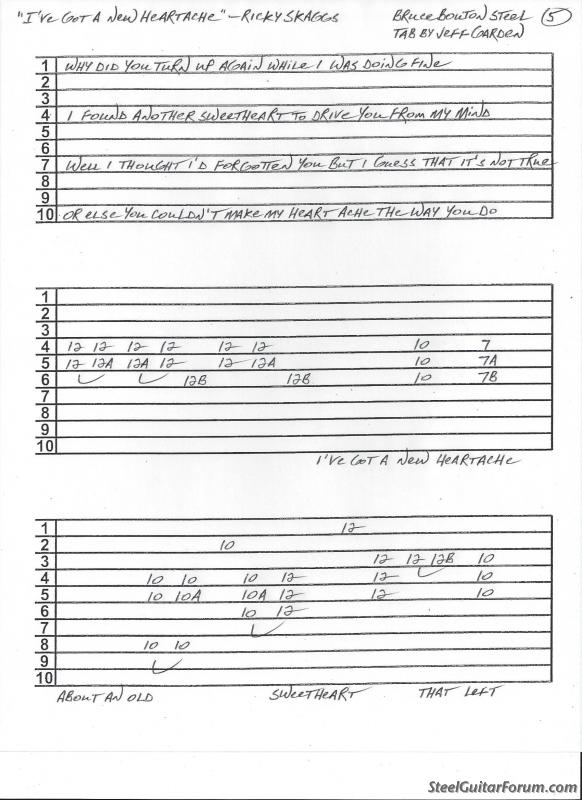 "I'VE GOT A NEW HEARTACHE" - RICKY SKAGGS
BRUCE BOUTON STEEL 5
TAB BY JEFF GARDEN
1 WHY DID YOU TURN UP AGAIN WHILE I WAS DOING FINE
2
3
4 I FOUND ANOTHER SWEETHEART TO DRIVE YOU FROM MY MIND
5
6
7 WELL I THOUGHT I'D FORGOTTEN YOU BUT I GUESS THAT IT'S NOT TRUE
8
9
10 OR ELSE YOU COULDN'T MAKE MY HEART ACHE THE WAY YOU DO
1
2
3
4 12 12 12 12 12 12 10 7
5 12 12A 12A 12 12 12A 10 7A
6 12B 12B 10 7B
7
8
9
10
I'VE GOT A NEW HEARTACHE
1 12
2 10
3 12 12 12B 10
4 10 10 10 12 12 10
5 10 10A 10A 12 12 10
6 10 12
7
8 10 10
9
10
ABOUT AN OLD SWEETHEART THAT LEFT
SteelGuitarForum.com